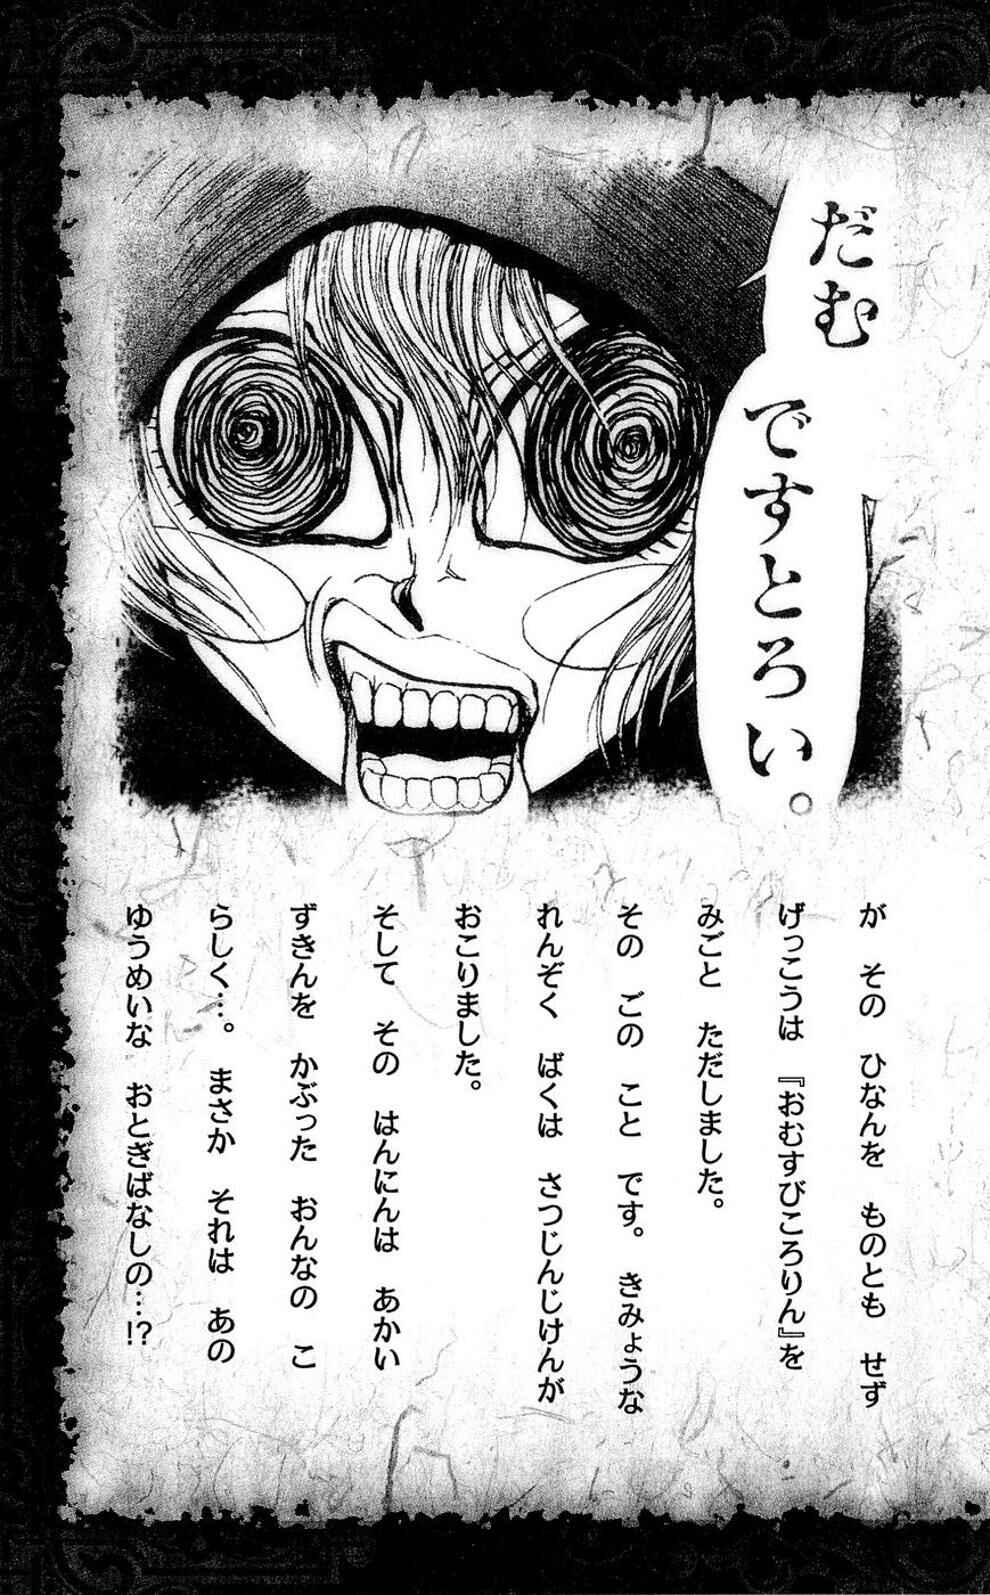 だむ
ですとろい。
が その ひなんを ものとも せず
げっこうは 『おむすびころりん』を
みごと ただしました。
その ごの こと です。 きみょうな
れんぞく ばくは さつじんじけんが
おこりました。
そして その はんにんは あかい
ずきんを かぶった おんなの こ
らしく…。 まさか それは あの
ゆうめいな おとぎばなしの…!?